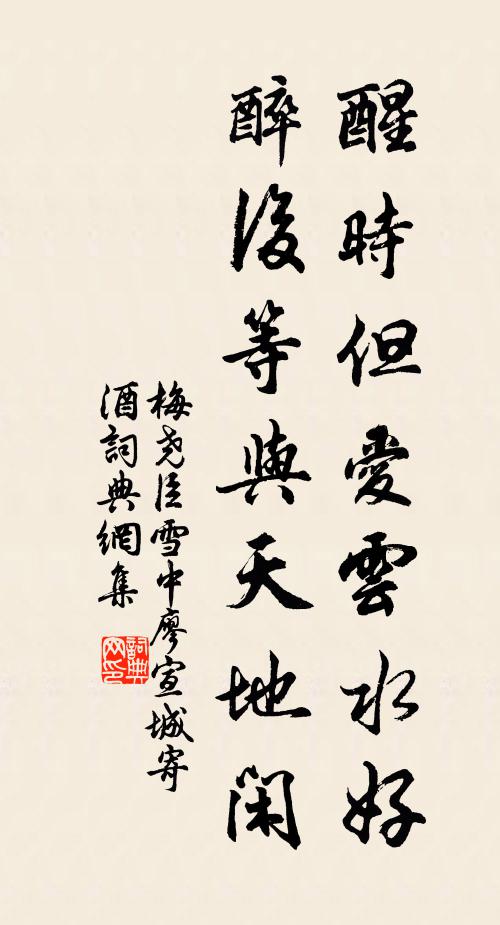 醒時但愛雲水好
醉後等與天地閑
梅堯臣雪中廖宣城寄
酒詞典網集
詞典
网印